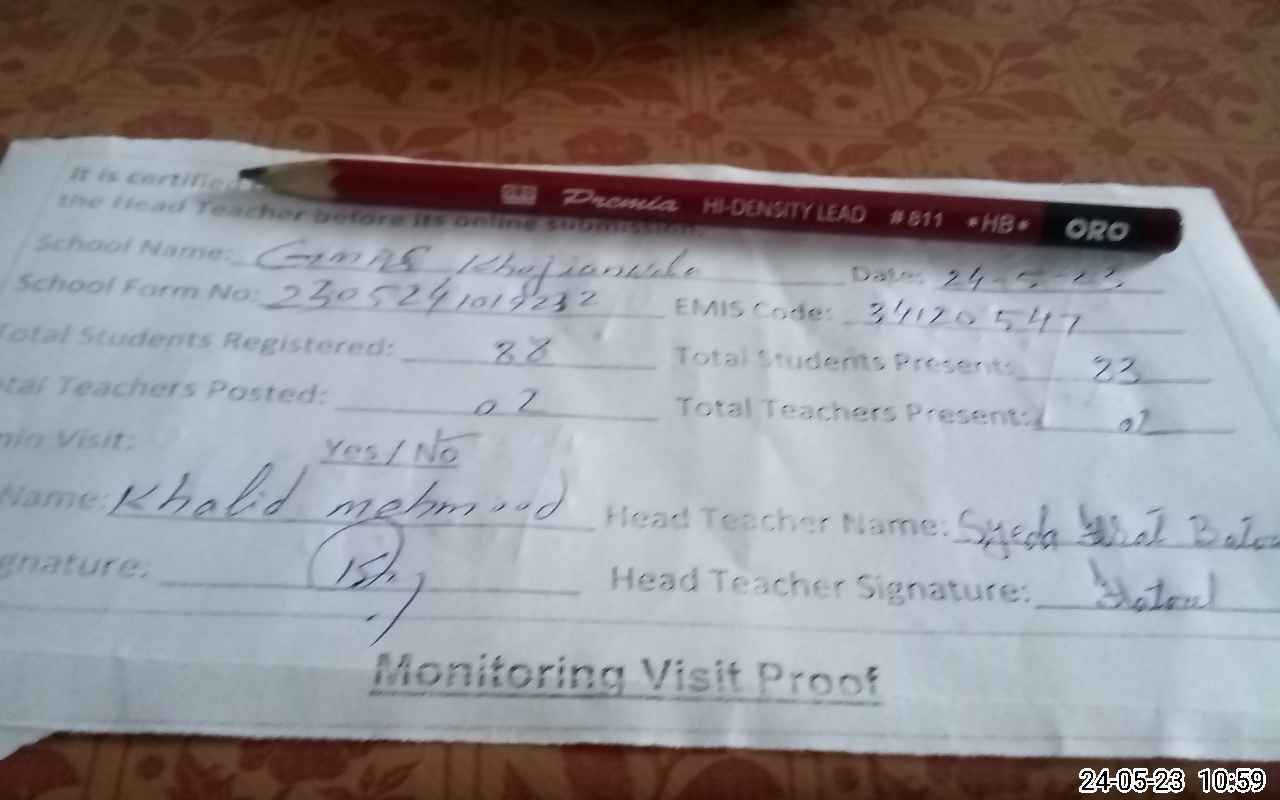 It is certified
Premia HI-DENSITY LEAD #811 *HB* ORO
the Head Teacher before its online submission.
School Name: GMPS Date: 24-5-23
School Form No: 2305241019232 EMIS Code: 34120547
Total Students Registered: 88 Total Students Present: 83
tal Teachers Posted: 02 Total Teachers Present: 02
min Visit: Yes / No
Name: Khalid mehmood Head Teacher Name: Syeda
gnature: Head Teacher Signature: Batool
Monitoring Visit Proof
24-05-23 10:59